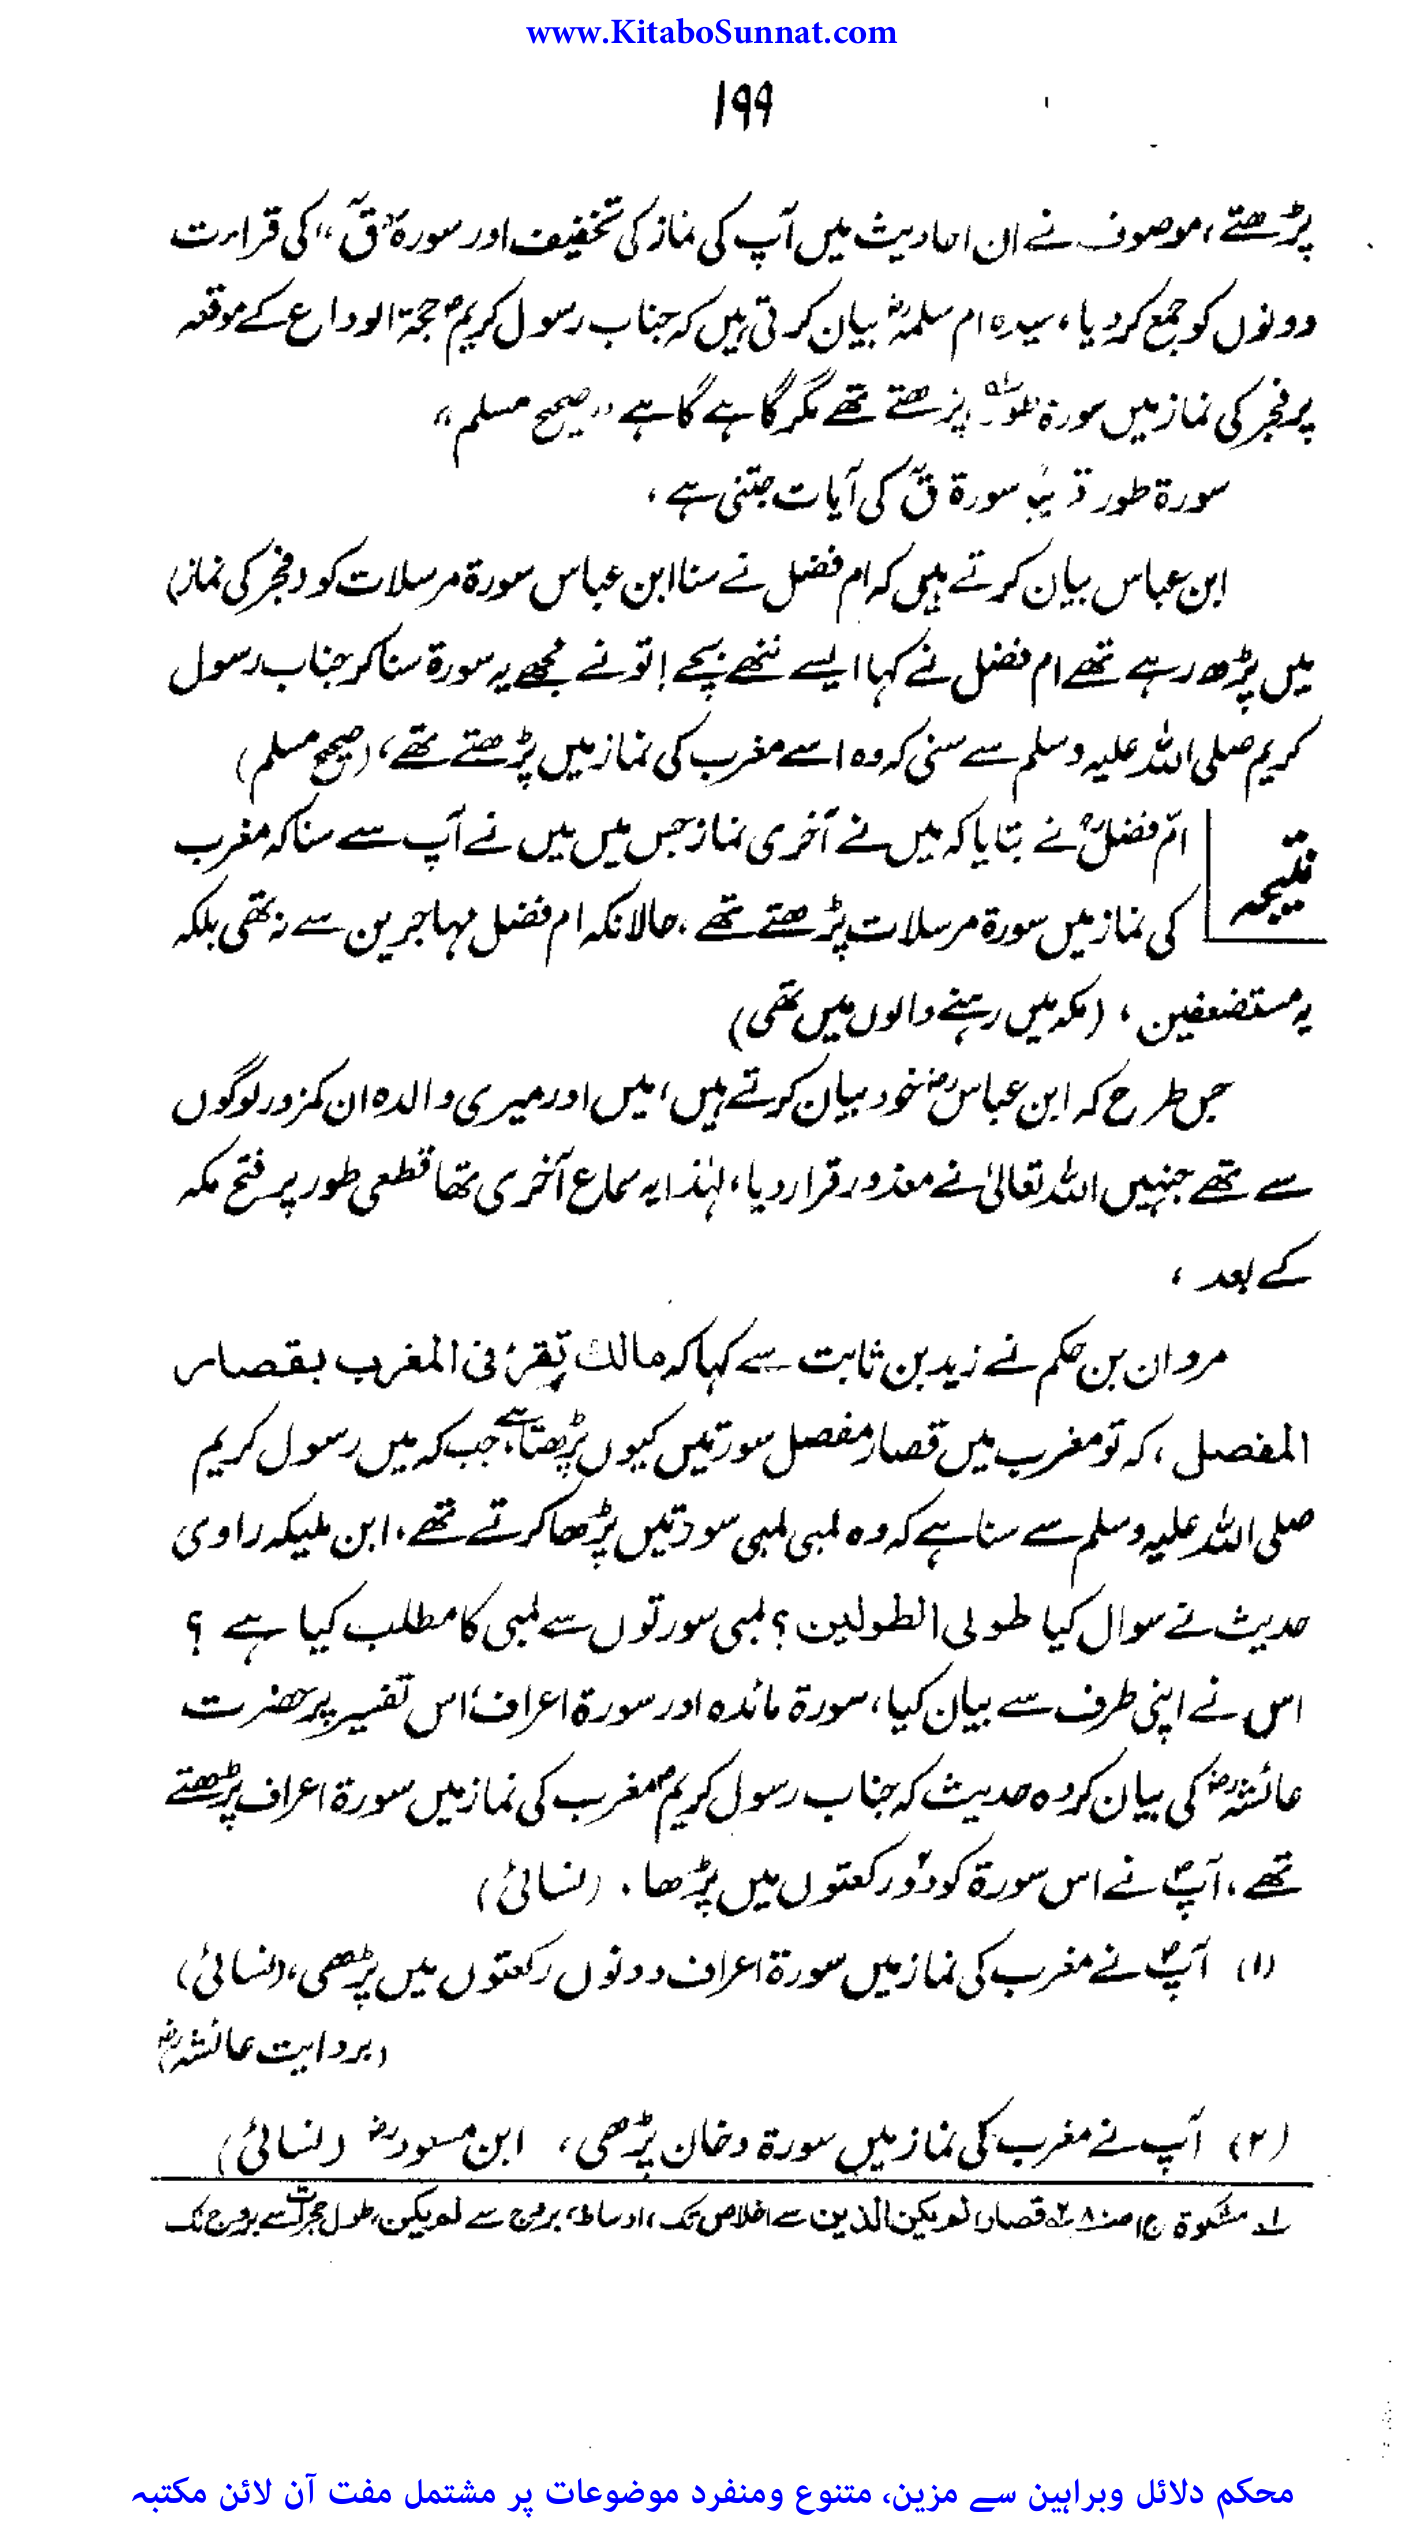 www.KitaboSunnat.com
۱۹۹
پڑھتے، موصوف نے ان احادیث میں آپ کی نماز کی تخفیف اور سورۃ "قٓ" کی قراءت
دونوں کو جمع کر دیا، سیدہ ام سلمہؓ بیان کرتی ہیں کہ جناب رسول کریمؐ حجۃ الوداع کے موقعہ
پر فجر کی نماز میں سورۃ طور پڑھتے تھے مگر گاہے گاہے "صحیح مسلم"
سورۃ طور قریب سورۃ قٓ کی آیات جتنی ہے،
ابن عباس بیان کرتے ہیں کہ ام فضل نے سنا ابن عباس سورۃ مرسلات کو (فجر کی نماز)
میں پڑھ رہے تھے ام فضل نے کہا ایسے ننھے بچے! تو نے مجھے یہ سورۃ سنا کر جناب رسول
کریم صلی اللہ علیہ وسلم سے سنی کہ وہ اسے مغرب کی نماز میں پڑھتے تھے، (صحیح مسلم)
نتیجہ
امّ فضلؓ نے بتایا کہ میں نے آخری نماز جس میں میں نے آپ سے سنا کہ مغرب
کی نماز میں سورۃ مرسلات پڑھتے تھے، حالانکہ ام فضل مہاجرین سے نہ تھی بلکہ
یہ مستضعفین، (مکہ میں رہنے والوں میں تھی)
جس طرح کہ ابن عباسؓ خود بیان کرتے ہیں، میں اور میری والدہ ان کمزور لوگوں
سے تھے جنہیں اللہ تعالیٰ نے معذور قرار دیا، لہٰذا یہ سماع آخری تھا قطعی طور پر فتح مکہ
کے بعد،
مروان بن حکم نے زید بن ثابت سے کہا کہ مالک تقرئ فی المغرب بقصار
المفصل، کہ تو مغرب میں قصار مفصل سورتیں کیوں پڑھتا ہے، جب کہ میں رسول کریم
صلی اللہ علیہ وسلم سے سنا ہے کہ وہ لمبی لمبی سورتیں پڑھا کرتے تھے، ابن ملیکہ راوی
حدیث نے سوال کیا طولی الطولین؟ لمبی سورتوں سے لمبی کا مطلب کیا ہے؟
اس نے اپنی طرف سے بیان کیا، سورۃ مائدہ اور سورۃ اعراف، اس تفسیر پر حضرت
عائشہؓ کی بیان کردہ حدیث کہ جناب رسول کریمؐ مغرب کی نماز میں سورۃ اعراف پڑھتے
تھے، آپؐ نے اس سورۃ کو دو رکعتوں میں پڑھا۔ (نسائی)
(۱) آپؐ نے مغرب کی نماز میں سورۃ اعراف دونوں رکعتوں میں پڑھی، (نسائی)
(بروایت عائشہؓ)
(۲) آپ نے مغرب کی نماز میں سورۃ دخان پڑھی، ابن مسعودؓ (نسائی)
مشکوۃ ج۱ قصار لم یکن الذین سے اخلاص تک، اوساط، بروج سے لم یکن، طول حجرات سے بروج تک
محکم دلائل وبراہین سے مزین، متنوع ومنفرد موضوعات پر مشتمل مفت آن لائن مکتبہ